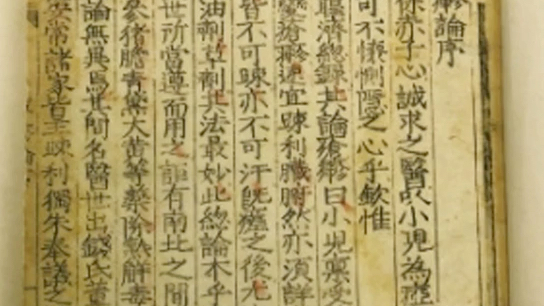 論序
保赤子心誠求之醫以小兒為
可不懷惻隱之心乎欽惟
聖濟總錄其論瘡疹曰小兒禀受
瘡疹宜踈利臟腑然亦須詳
皆不可踈亦不可汗旣之後尤
油劑草劑其法最妙此總論本乎
世所當遵而用之詎有南北之間
參猪膽青黛大黃等藥除熱解毒
論無異焉其間名醫世出錢氏董
常諸家皆主踈利獨朱奉議之